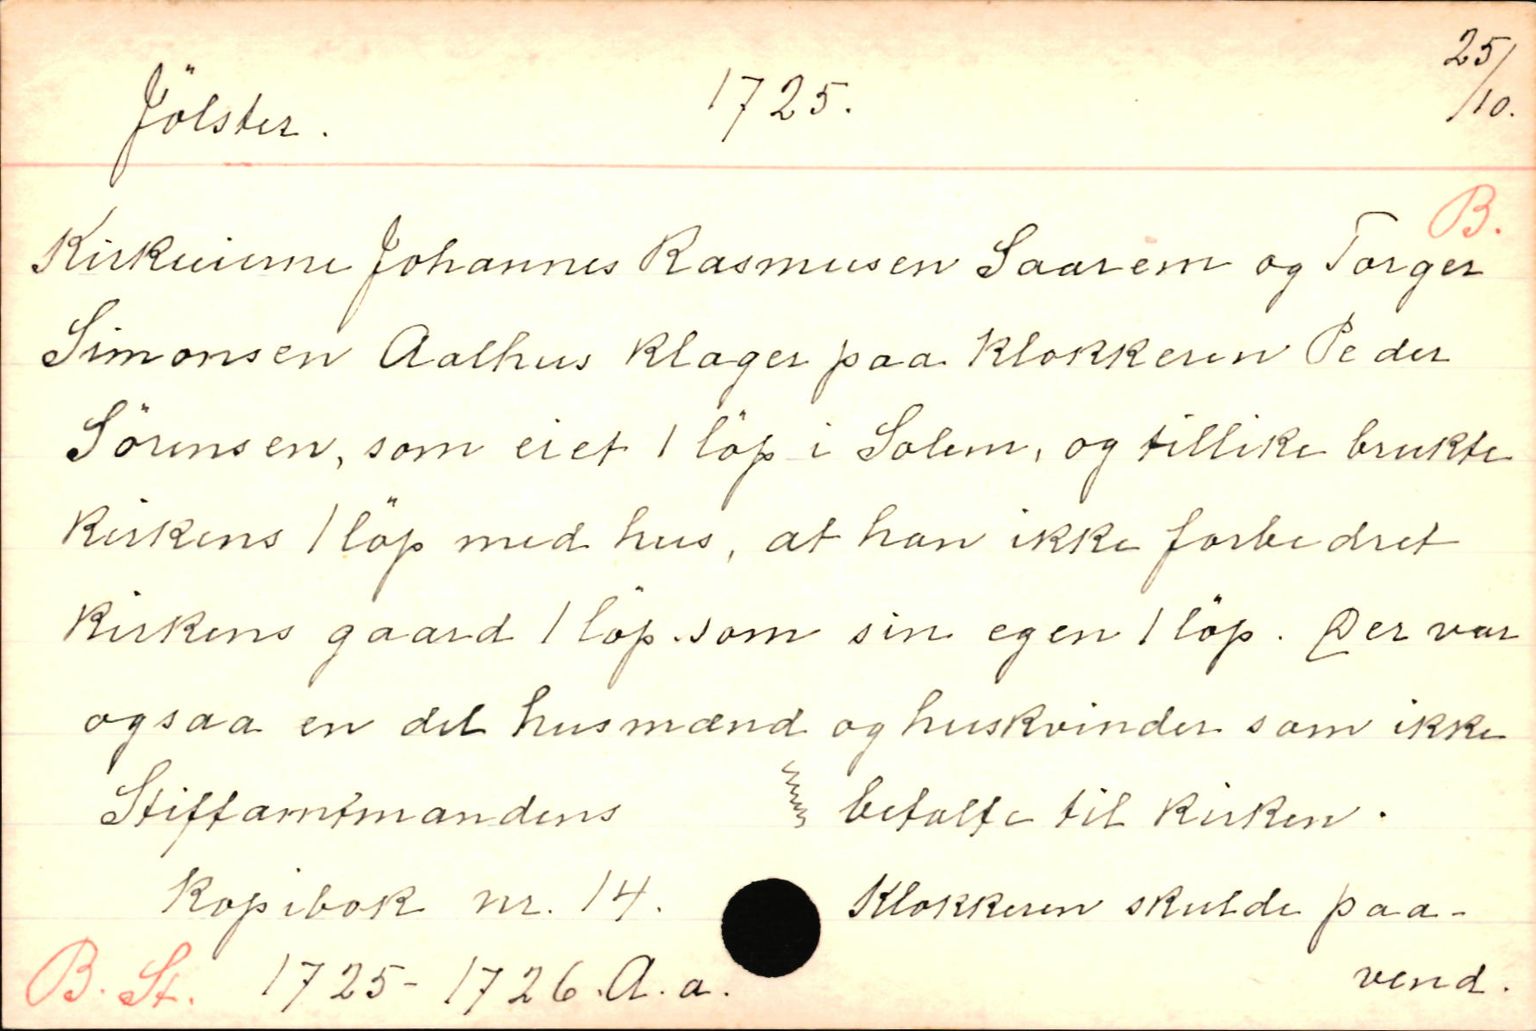 Jölster. 1725. 25/10.
B.
Kirkeierne Johannes Rasmusen Saarem og Torger
Simonsen Aalhus klager paa klokkeren Peder
Sörensen, som eiet 1 löp i Solem, og tillike brukte
kirkens 1 löp med hus, at han ikke forbedret
kirkens gaard 1 löp som sin egen 1 löp. Der var
ogsaa en del husmænd og huskvinder som ikke
betalte til kirken.
Klokkeren skulde paa-
vend.
Stiftamtmandens
Kopibok nr. 14.
B. St. 1725-1726. A. a.